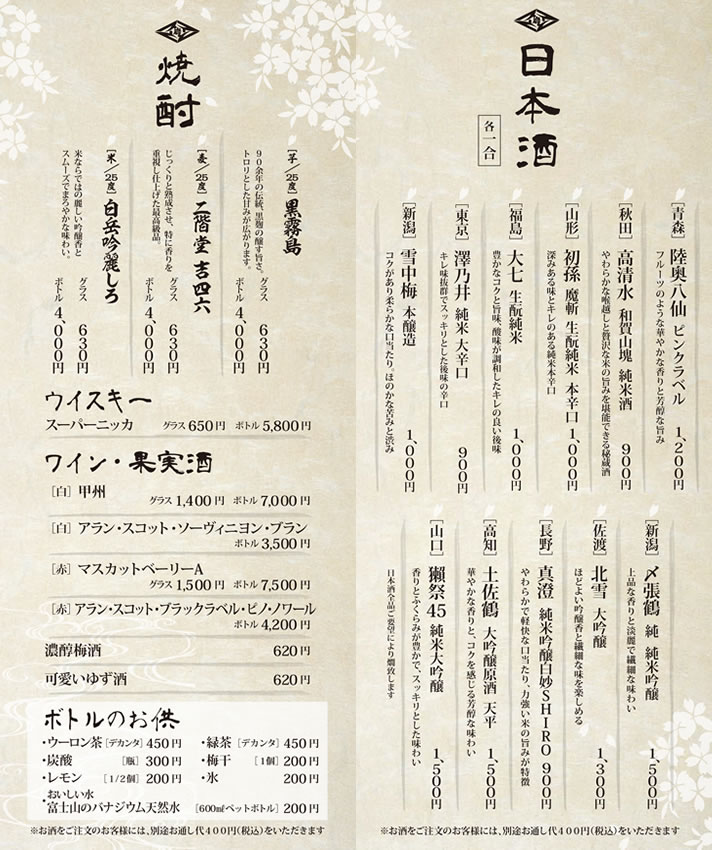 日本酒
各一合
[青森] 陸奥八仙 ピンクラベル 1,200円
フルーツのような華やかな香りと芳醇な旨み
[秋田] 高清水 和賀山塊 純米酒 900円
やわらかな喉越しと贅沢な米の旨みを堪能できる秘蔵酒
[山形] 初孫 魔斬 生酛純米 本辛口 1,000円
深みある味とキレのある純米本辛口
[福島] 大七 生酛純米 1,000円
豊かなコクと旨味、酸味が調和したキレの良い後味
[東京] 澤乃井 純米 大辛口 900円
キレ味抜群でスッキリとした後味の辛口
[新潟] 雪中梅 本醸造 1,000円
コクがあり柔らかな口当たり。ほのかな苦みと渋み
[新潟] 〆張鶴 純 純米吟醸 1,500円
上品な香りと淡麗で繊細な味わい
[佐渡] 北雪 大吟醸 1,300円
ほどよい吟醸香と繊細な味を楽しめる
[長野] 真澄 純米吟醸白妙SHIRO 900円
やわらかで軽快な口当たり、力強い米の旨みが特徴
[高知] 土佐鶴 大吟醸原酒 天平 1,500円
華やかな香りと、コクを感じる芳醇な味わい
[山口] 獺祭45 純米大吟醸 1,500円
香りとふくらみが豊かで、スッキリとした味わい
日本酒全品ご要望により燗致します
※お酒をご注文のお客様には、別途お通し代400円(税込)をいただきます
焼酎
[芋/25度] 黒霧島
90余年の伝統、黒麹の醸す旨さ。
トロリとした甘みが広がります。
グラス 630円
ボトル 4,000円
[麦/25度] 二階堂 吉四六
じっくりと熟成させ、特に香りを
重視し仕上げた最高級品。
グラス 630円
ボトル 4,000円
[米/25度] 白岳吟麗しろ
米ならではの麗しい吟醸香と
スムーズでまろやかな味わい。
グラス 630円
ボトル 4,000円
ウイスキー
スーパーニッカ グラス 650円 ボトル 5,800円
ワイン・果実酒
[白] 甲州
グラス 1,400円 ボトル 7,000円
[白] アラン・スコット・ソーヴィニヨン・ブラン
ボトル 3,500円
[赤] マスカットベーリーA
グラス 1,500円 ボトル 7,500円
[赤] アラン・スコット・ブラックラベル・ピノ・ノワール
ボトル 4,200円
濃醇梅酒 620円
可愛いゆず酒 620円
ボトルのお供
・ウーロン茶 [デカンタ] 450円 ・緑茶 [デカンタ] 450円
・炭酸 [瓶] 300円 ・梅干 [1個] 200円
・レモン [1/2個] 200円 ・氷 200円
おいしい水
・富士山のバナジウム天然水 [600mlペットボトル] 200円
※お酒をご注文のお客様には、別途お通し代400円(税込)をいただきます